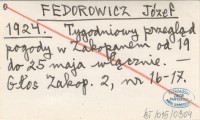 FEDOROWICZ Józef
1924. Tygodniowy przegląd
pogody w Zakopanem od 19
do 25 maja włącznie. —
Głos Zakop. 2, nr 16-17.